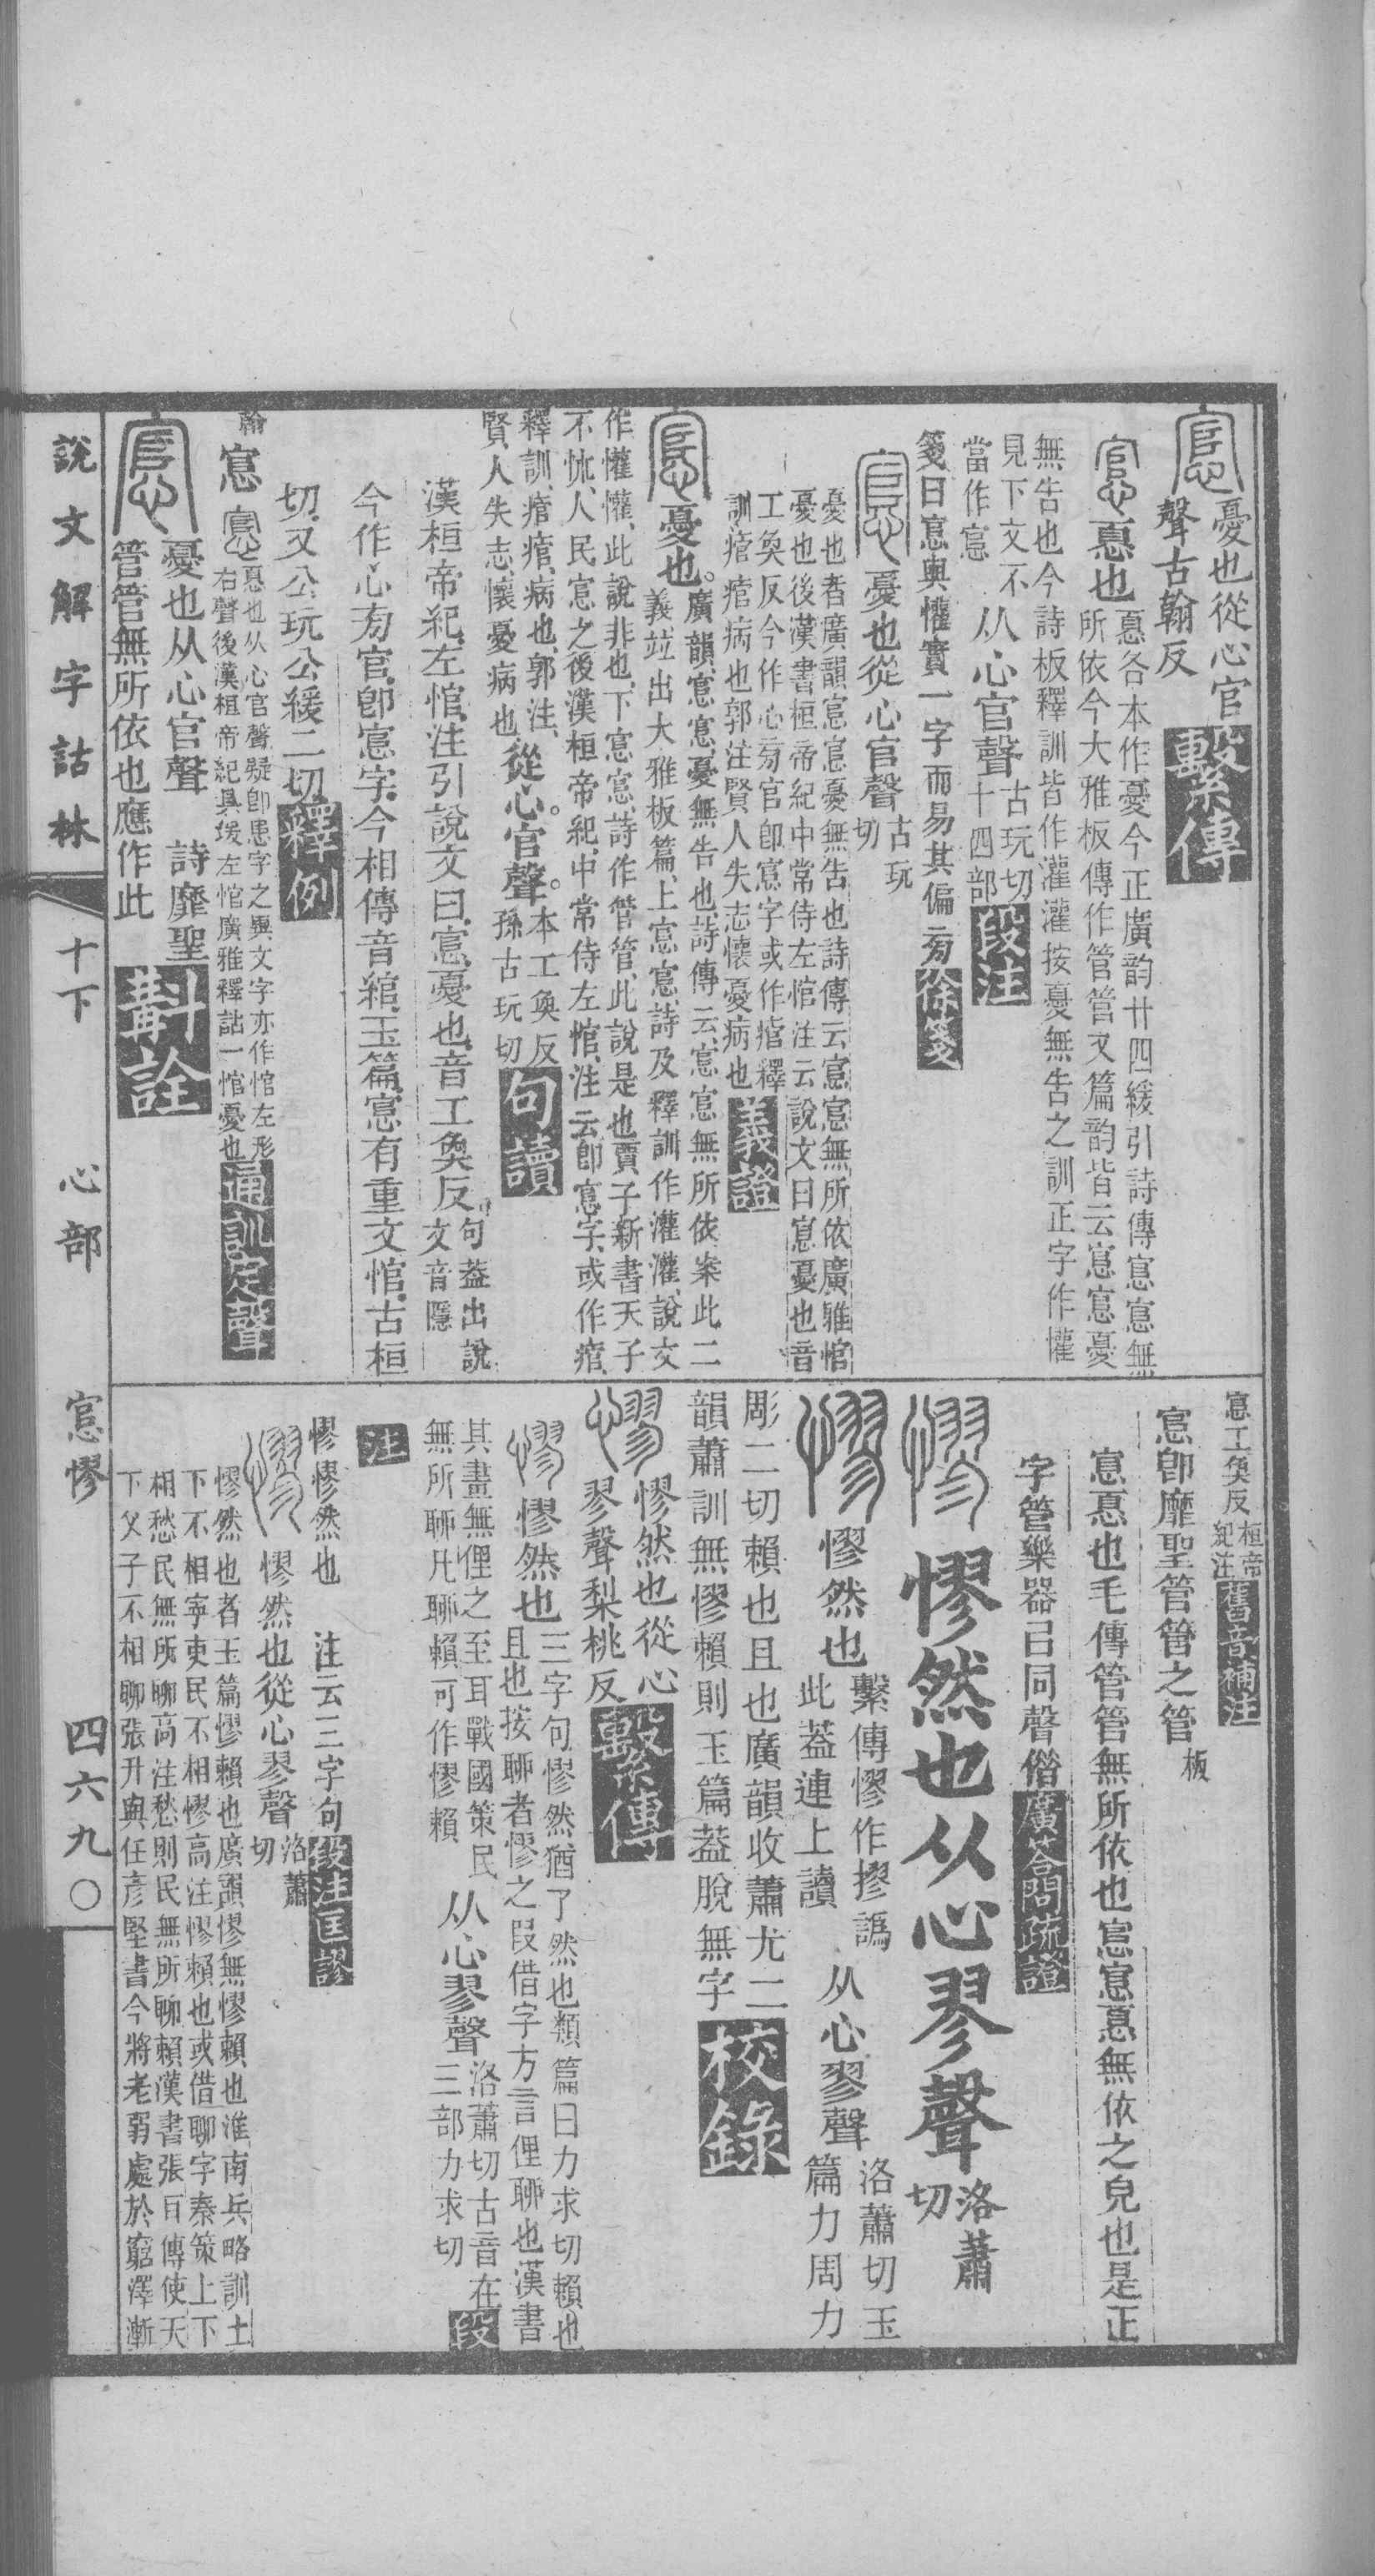 憂也從心官
聲古翰反
繫傳
悹 𢝊也
𢝊各本作憂今正廣韵廿四緩引詩傳悹悹無
所依今大雅板傳作管管又篇韵皆云悹悹憂
無告也今詩板釋訓皆作灌灌按憂無告之訓正字作懽
見下文不
當作悹
从心官聲
古玩切
十四部
段注
箋曰悹與懽實一字而易其偏㫄
徐箋
憂也從心官聲
古玩
切
憂也者廣韻悹悹憂無告也詩傳云悹悹無所依廣雅悺
憂也後漢書桓帝紀中常侍左悺注云說文曰悹憂也音
工奐反今作心㫄官卽悹字或作痯釋
訓痯痯病也郭注賢人失志懷憂病也
義證
憂也。
廣韻悹悹憂無告也詩傳云悹悹無所依案此二
義竝出大雅板篇上悹悹詩及釋訓作灌灌說文
作懽懽此說非也下悹悹詩作管管此說是也賈子新書天子
不怴人民悹之後漢桓帝紀中常侍左悺注云卽悹字或作痯
釋訓痯痯病也郭注
賢人失志懷憂病也
從心官聲。
本工奐反
孫古玩切
句讀
漢桓帝紀左悺注引說文曰悹憂也音工奐反
句葢出說
文音隱
今作心㫄官卽悹字今相傳音綰玉篇悹有重文悺古桓
切又公玩公緩二切
釋例
翰
悹
𢝊也从心官聲疑卽患字之異文字亦作悺左形
右聲後漢桓帝紀具瑗左悺廣雅釋詁一悺憂也
通訓定聲
憂也从心官聲 詩靡聖
管管無所依也應作此
斠詮
說文解字詁林 十下 心部 悹憀 四六九〇
悹工奐反
桓帝
紀注
舊音補注
悹卽靡聖管管之管
板
悹𢝊也毛傳管管無所依也悹悹𢝊無依之皃也是正
字管樂器㠯同聲偕
廣答問疏證
憀然也从心翏聲
洛蕭
切
憀然也
繫傳憀作摎譌
此葢連上讀
从心翏聲
洛蕭切玉
篇力周力
彫二切賴也且也廣韻收蕭尤二
韻蕭訓無憀賴則玉篇葢脫無字
校錄
憀然也從心
翏聲梨桃反
繫傳
憀然也
三字句憀然猶了然也類篇曰力求切賴也
且也按聊者憀之叚借字方言俚聊也漢書
其畫無俚之至耳戰國策民
無所聊凡聊賴可作憀賴
从心翏聲
洛蕭切古音在
三部力求切
段
注
憀憀然也 注云三字句
段注匡謬
憀然也從心翏聲
洛蕭
切
憀然也者玉篇憀賴也廣韻憀無憀賴也淮南兵略訓上
下不相寧吏民不相憀高注憀賴也或借聊字秦策上下
相愁民無所聊高注愁則民無所聊賴漢書張耳傳使天
下父子不相聊張升與任彥堅書今將老弱處於窮澤漸